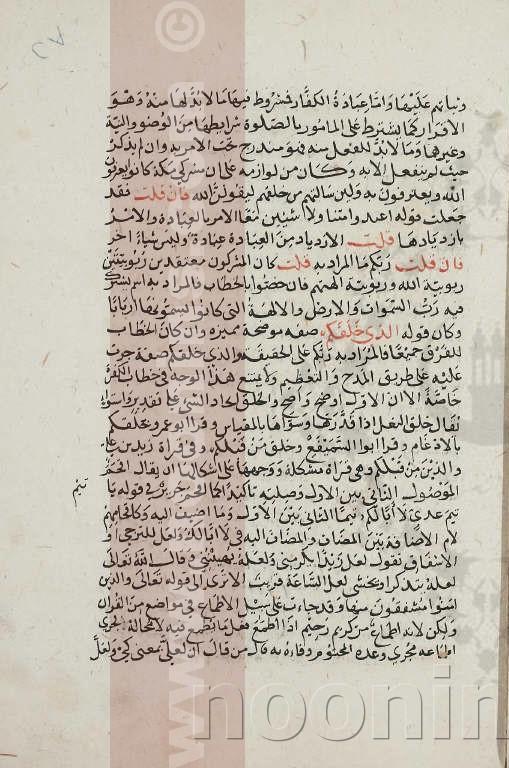 وثباتهم عليها وأما عبادة الكفار فمشروط فيها ما لا بد لها منه وهو
الاقرار كما يشترط على المأمور بالصلوة شرايطها من الوضوء والنية
وغيرهما وما لا بد للفعل منه فهو مندرج تحت الأمر به وان لم يذكر
حيث لم ينفعل الا به وكان من لوازمه على ان مشركي مكة كانوا يعرفون
الله ويعترفون به ولين سالتهم من خلقهم ليقولن الله فان قلت فقد
جعلت قوله اعبدوا متناولا شيئين معا الامر بالعبادة والامر
بازديادها قلت الازدياد من العبادة عبادة وليس شيا اخر
فان قلت ربكم ما المراد به قلت كان المشركون معتقدين ربوبيتين
ربوبية الله وربوبية الهتهم فان خصوا بالخطاب فالمراد به اسم يشترك
فيه رب السموات والارض والالهة التي كانوا يسمونها اربابا
وكان قوله الذي خلقكم صفه موضحة مميزه وان كان الخطاب
للفرق جميعا فالمراد به ربكم على الحقيقة والذي خلقكم صفة جرت
عليه على طريق المدح والتعظيم ولا يمتنع هذا الوجه في خطاب الكفرة
خاصة الا ان الاول اوضح واصح والخلق ايجاد الشي على تقدير واستواء
يقال خلق النعل اذا قدرها وسواها بالمقياس وقرا ابو عمرو خلقكم
بالادغام وقرا ابو السميفع وخلق من قبلكم وفي قراة زيد بن علي
والذين من قبلكم وهي قراة مشكلة ووجهها على اشكالها ان يقال اقحم
الموصول الثاني بين الاول وصلته تاكيدا كما اقحم جرير في قوله يا
تيم
تيم عدي لا أبا لكم تيما الثاني بين الاول وما اضيف اليه وكاقحامهم
لام الاضافة بين المضاف والمضاف اليه في لا ابا لك ولعل للترجي او
الاشفاق تقول لعل زيدا يكرمني ولعله يهينني وقال الله تعالى
لعله يتذكر او يخشى لعل الساعة قريب الا ترى الى قوله تعالى والذين
امنوا مشفقون منها وقد جاءت على سبيل الاطماع في مواضع من القران
ولكن لانه اطماع من كريم رحيم اذا اطمع فعل ما يطمع فيه لا محالة لجري
اطماعه مجرى وعده المحتوم وفاؤه به قال من قال ان لعل بمعنى كي ولعل
noonin